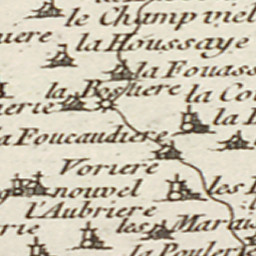 le Champ viel
uiere
la Houssaye
la Fouass
la Bossiere
la Co
erie
la Foucaudiere
la
Voriere
nouvel
les
l'Aubriere
rie
les Marai
la Poulerie